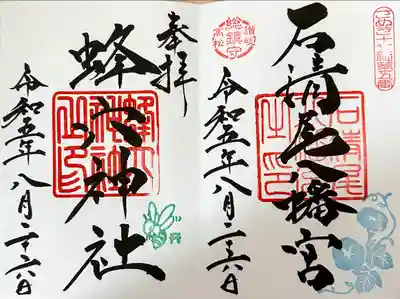 石清尾八幡宮
讃岐
総鎮守
高松
令和五年八月二十六日
奉拝
蜂穴神社
令和五年八月二十六日